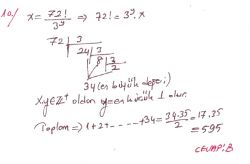 10/ x = 72! / 3^y ⇒ 72! = 3^y . x
72 | 3
24 | 3
8 | 3
2
34 (en büyük değeri)
x,y ∈ Z⁺ olduğu y en küçük 1 olur.
Toplam ⇒ 1+2+ ------ +34 = 34.35 / 2 = 17.35
= 595
CEVAP: B